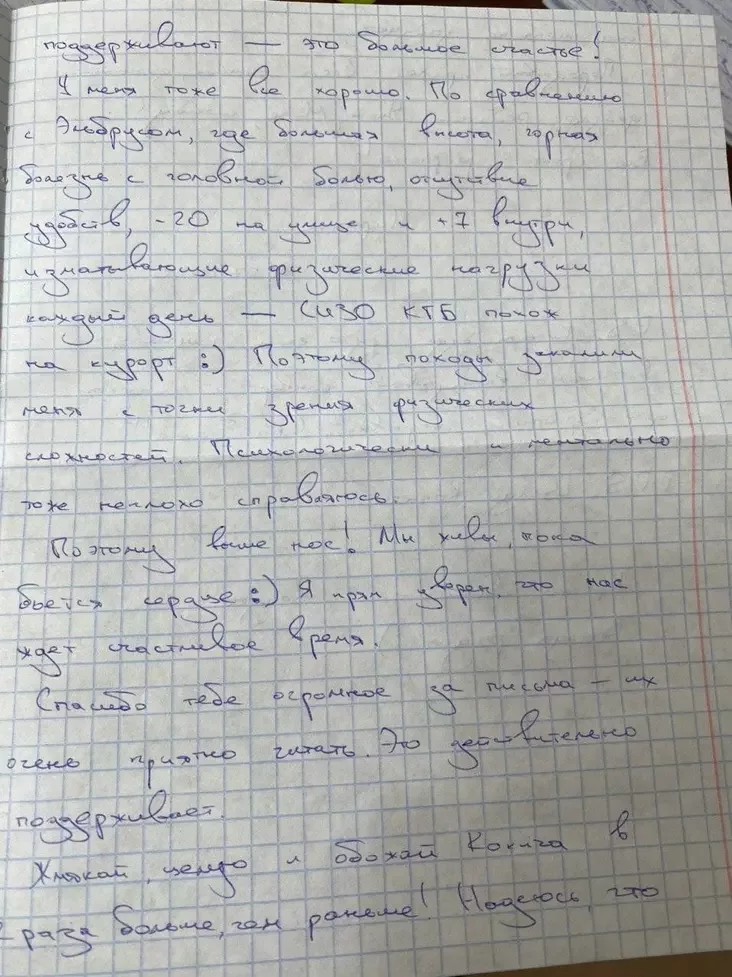 поддерживают — это большое счастье!
У меня тоже все хорошо. По сравнению
с Эльбрусом, где большая высота, горная
болезнь с головной болью, отсутствие
удобств, -20 на улице и +7 внутри,
изматывающие физические нагрузки
каждый день — СИЗО КГБ похож
на курорт :) Поэтому походы закалили
меня с точки зрения физических
сложностей. Психологически и ментально
тоже неплохо справляюсь.
Поэтому выше нос! Мы живы, пока
бьется сердце :) Я прям уверен, что нас
ждет счастливое время.
Спасибо тебе огромное за письма — их
очень приятно читать. Это действительно
поддерживает.
целую и обожай в
2 раза больше, чем раньше! Надеюсь, что